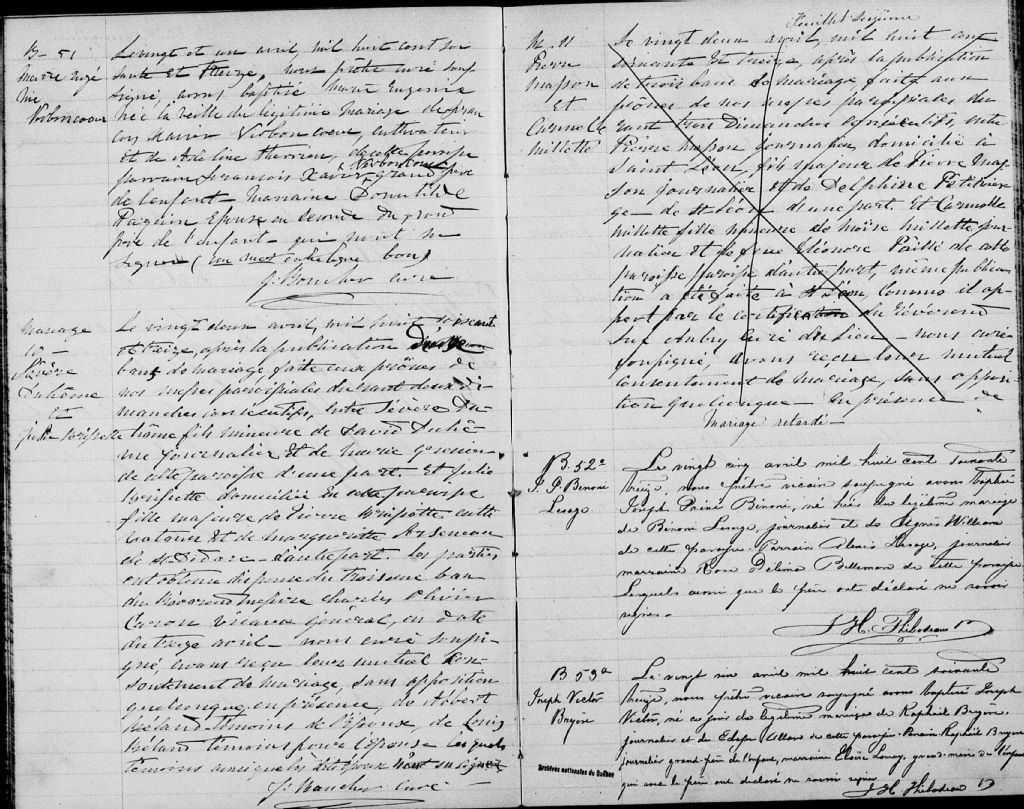 B-51
Marie Eugé
nie
Robencoeur
Le vingt et un avril, mil huit cent soi
xante et treize, nous prêtre curé sous
signé, avons baptisé Marie Eugenie
née la veille du légitime mariage de Fran
çois Xavier cultivateur
et de Adeline Therrien, de cette paroisse
parrain François Xavier grand père
de l'enfant - Marraine Domithilde
Paquin épouse en seconde du grand
père de l'enfant - qui n'ont su
signer ( bon)
J. Boucher curé
Mariage
10
Sévère
Duhême
et
Julie Frisette
Le vingt deux avril, mil huit
et treize, après la publication
bans de mariage faite aux prônes de
nos messes paroissiales durant deux di
manches consécutifs, entre Sévère Du-
hême fils mineure de David Duhê-
me journalier et de Marie
de cette paroisse d'une part. Et Julie
domiciliée en cette paroisse
fille majeure de Pierre culti
vateur et de Marguerite Arseneau
de St Didace - d'autre part. les parties
ont obtenu dispense du troisième ban
du Révérend messire Charles Olivier
Caron Vicaire Général, en date
du treize avril - nous curé soussi-
gné, avons reçu leur mutuel con
sentement de mariage, sans opposition
quelconque en présence, de
Béland témoins de l'époux, de Louis
Béland témoins pour l'épouse lesquels
témoins ainsi que les époux n'ont su signer
J. Boucher Curé
Feuillet
M. 11
Pierre
Masson
Et
Carmelle
Millette
Le vingt deux avril, mil huit cent
soixante et treize, après la publication
de trois bans de mariage, faite aux
prônes de nos messes paroissiales du
rant trois Dimanches consécutifs, entre
Pierre Masson journalier, domicilié à
Saint Léon, fils majeur de Pierre Mas
son journalier et de Delphine
de St Léon d'une part. Et Carmelle
Millette fille mineure de Moïse Millette jour
nalier et de feue Eléonore Paillé de cette
paroisse paroisse d'autre part, même publica
tion a été faite à St Léon, Comme il ap
pert par le certificat du Révérend
Aubry curé du Lieu - nous curé
soussigné, avons reçu leur mutuel
consentement de mariage, sans opposi
tion quelconque - En présence de
Mariage retardé -
B. 52e
J. P. Binoni
Lesage
Le vingt cinq avril mil huit cent soixante
treize, nous prêtre vicaire soussigné avons baptisé
Joseph Binoni, né hier du légitime mariage
de Binoni Lesage, journalier et de Agnès William
de cette paroisse. Parrain Alexis Lesage, journalier
marraine Rose Délima Belleman de cette paroisse
Lesquels ainsi que le père ont déclaré ne savoir
signer.
J H. Thibodeau
B 53e
Joseph Victor
Bryère
Le vingt six avril mil huit cent soixante
treize, nous prêtre vicaire soussigné avons baptisé Joseph
Victor, né ce jour du légitime mariage de Raphaël Bryère
journalier et de de cette paroisse. Parrain Raphaël Bryère
journalier grand-père de l'enfant, marraine grand-mère de l'enfant
qui avec le père ont déclaré ne savoir signer
J H Thibodeau
Archives nationales du Québec